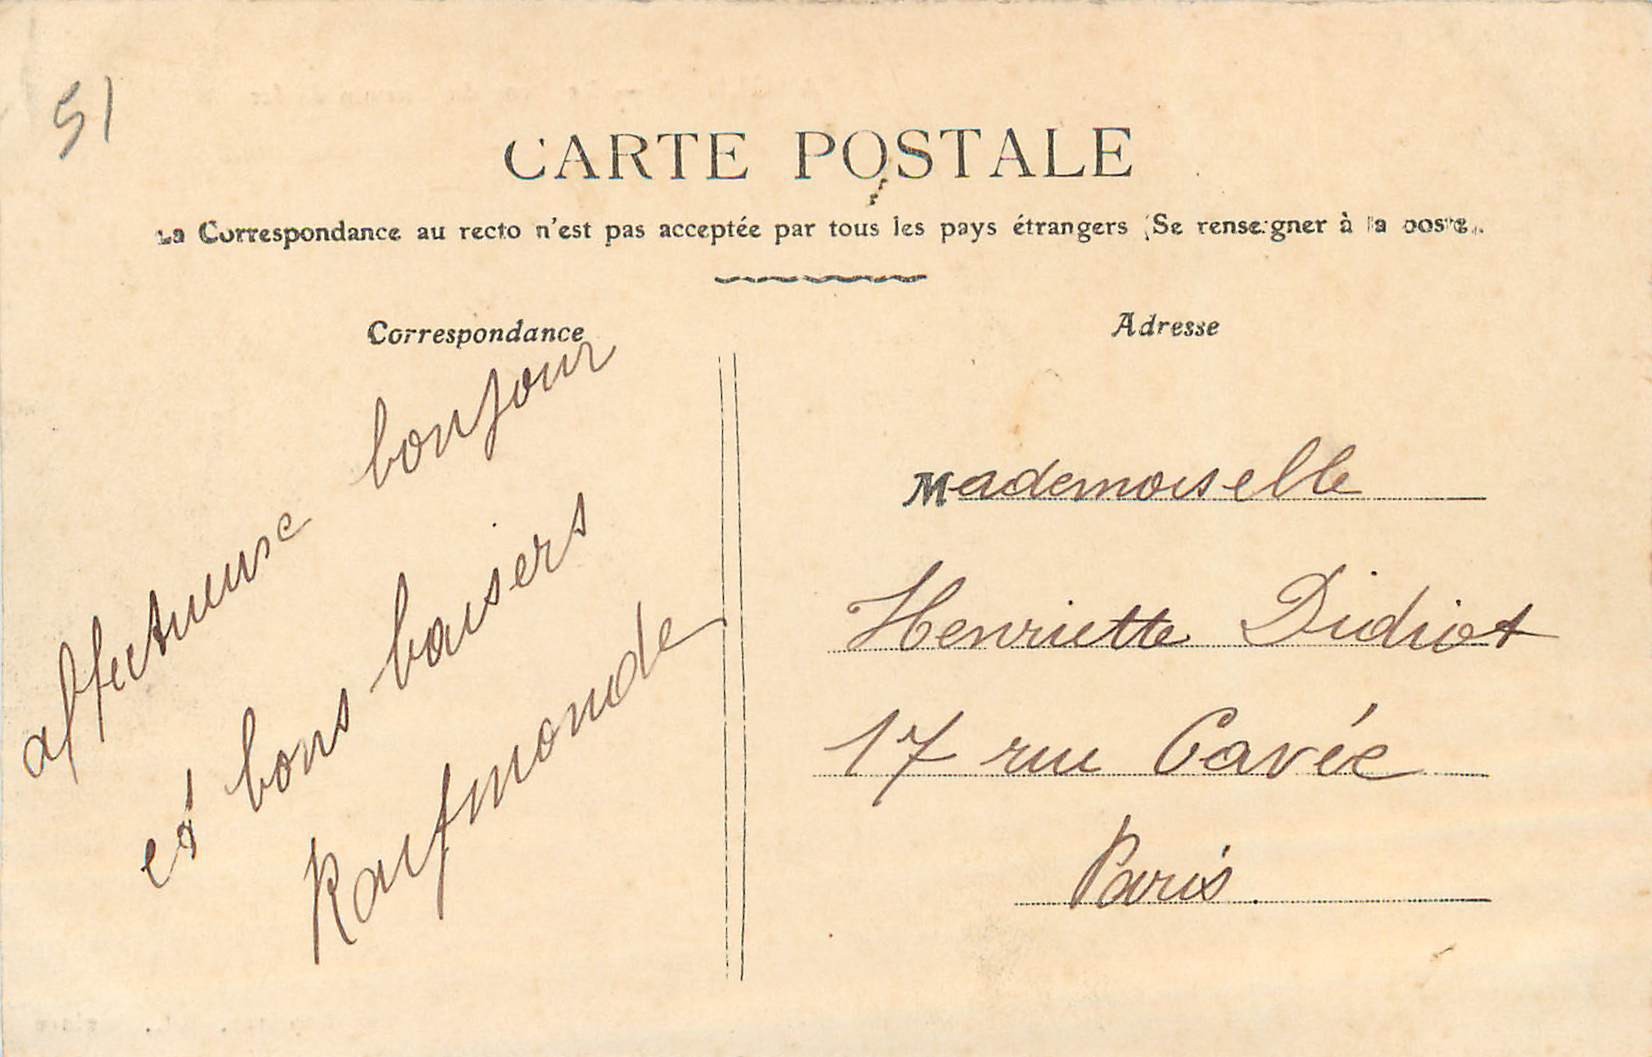 51
CARTE POSTALE
La Correspondance au recto n'est pas acceptée par tous les pays étrangers (Se renseigner à la poste).
Correspondance
affectueuse bonjour
et bons baisers
Raymonde
Adresse
Mademoiselle
Henriette Didiot
17 rue Cavée
Paris